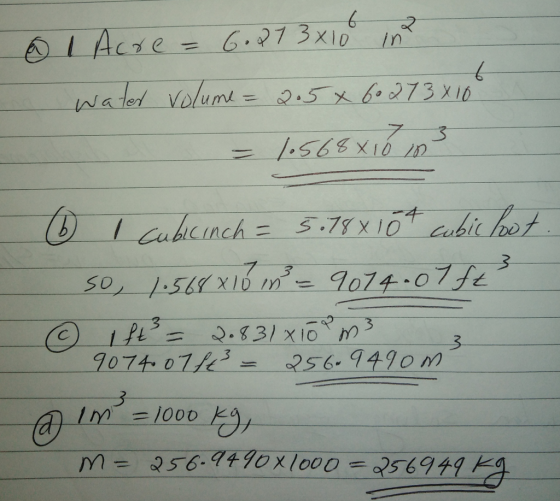 ⓐ 1 Acre = 6.273×10⁶ in²
water volume = 2.5 × 6.273×10⁶
= 1.568×10⁷ in³
ⓑ 1 cubic inch = 5.78×10⁻⁴ cubic foot.
so, 1.568×10⁷ in³ = 9074.07 ft³
ⓒ 1 ft³ = 2.831×10⁻² m³
9074.07 ft³ = 256.9490 m³
ⓓ 1m³ = 1000 kg,
M = 256.9490×1000 = 256949 kg